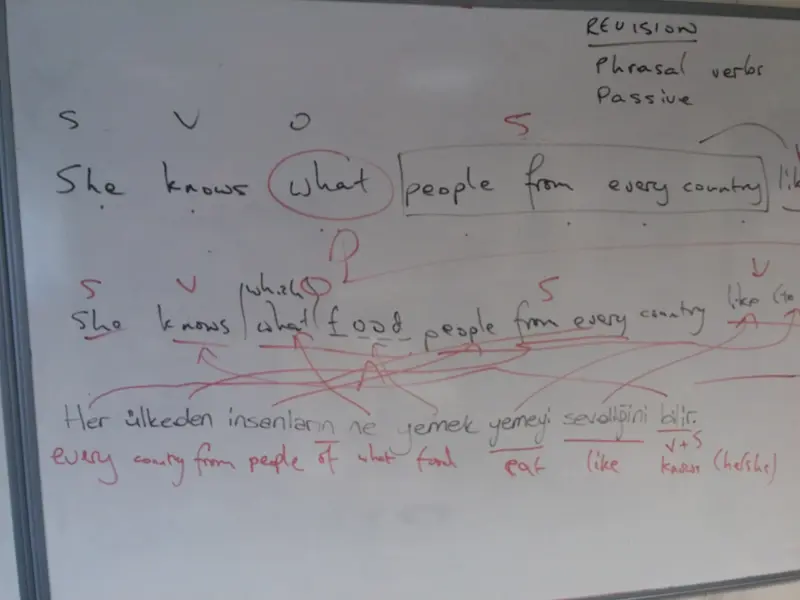 REVISION
Phrasal verbs
Passive
S V O S
She knows what people from every country
S V (which) O S V
She knows what food people from every country like (to
Her ülkeden insanların ne yemek yemeyi sevdiğini bilir.
V+S
every country from people of what food eat like knows (he/she)